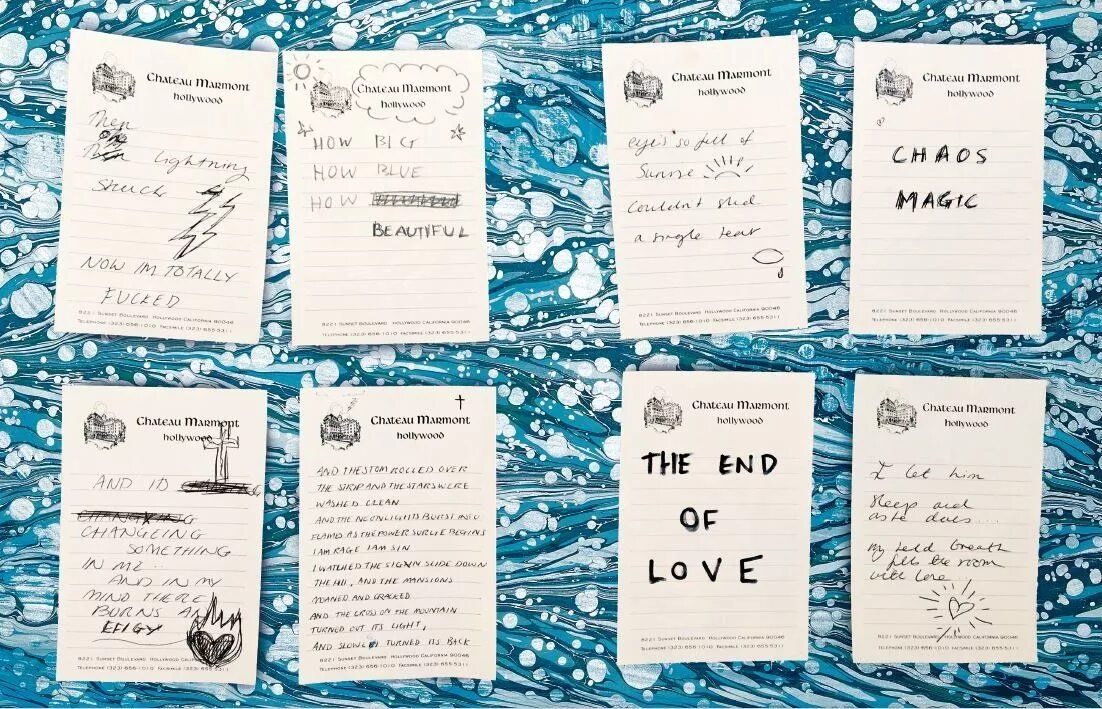 Chateau Marmont
hollywood
Then
lightning
struck
NOW IM TOTALLY
FUCKED
8221 SUNSET BOULEVARD HOLLYWOOD CALIFORNIA 90046
TELEPHONE (323) 656-1010 FACSIMILE (323) 655-5311
Chateau Marmont
hollywood
HOW BIG
HOW BLUE
HOW
BEAUTIFUL
8221 SUNSET BOULEVARD HOLLYWOOD CALIFORNIA 90046
TELEPHONE (323) 656-1010 FACSIMILE (323) 655-5311
Chateau Marmont
hollywood
eye's so full of
Sunrise
Couldn't shed
a single tear
8221 SUNSET BOULEVARD HOLLYWOOD CALIFORNIA 90046
TELEPHONE (323) 656-1010 FACSIMILE (323) 655-5311
Chateau Marmont
hollywood
CHAOS
MAGIC
8221 SUNSET BOULEVARD HOLLYWOOD CALIFORNIA 90046
TELEPHONE (323) 656-1010 FACSIMILE (323) 655-5311
Chateau Marmont
hollywood
AND ID
CHANGEING
SOMETHING
IN ME..
AND IN MY
MIND THERE
BURNS AN
EFIGY
8221 SUNSET BOULEVARD HOLLYWOOD CALIFORNIA 90046
TELEPHONE (323) 656-1010 FACSIMILE (323) 655-5311
Chateau Marmont
hollywood
AND THE STOM ROLLED OVER
THE STRIP AND THE STARS WERE
WASHED CLEAN
AND THE NEON LIGHTS BURST INTO
FLAMES AS THE POWER SURGE BEGINS
I AM RAGE I AM SIN
I WATCHED THE SIGN SLIDE DOWN
THE HILL, AND THE MANSIONS
MOANED AND CRACKED
AND THE CROSS ON THE MOUNTAIN
TURNED OUT ITS LIGHT,
AND SLOWLY TURNED ITS BACK
8221 SUNSET BOULEVARD HOLLYWOOD CALIFORNIA 90046
TELEPHONE (323) 656-1010 FACSIMILE (323) 655-5311
Chateau Marmont
hollywood
THE END
OF
LOVE
8221 SUNSET BOULEVARD HOLLYWOOD CALIFORNIA 90046
TELEPHONE (323) 656-1010 FACSIMILE (323) 655-5311
Chateau Marmont
hollywood
I let him
sleep and
as he does....
My held breath
fills the room
with love
8221 SUNSET BOULEVARD HOLLYWOOD CALIFORNIA 90046
TELEPHONE (323) 656-1010 FACSIMILE (323) 655-5311